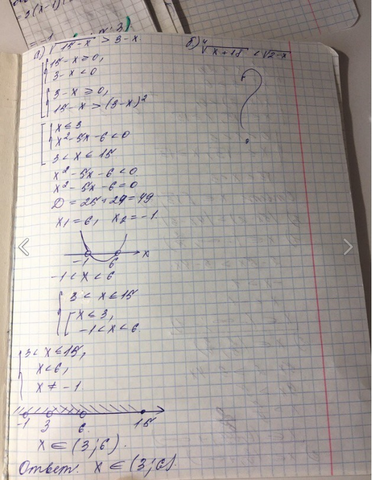 а) √15-x > 3-x
б) ⁴√x+15 < √2-x
15-x ≥ 0,
3-x < 0
3-x ≥ 0,
15-x > (3-x)²
x ≤ 3
x²-5x-6 < 0
3 < x ≤ 15
x²-5x-6 < 0
x²-5x-6 = 0
D = 25+24 = 49
x₁ = 6, x₂ = -1
-1 6 x
-1 < x < 6
3 < x ≤ 15
x ≤ 3,
-1 < x < 6
3 < x ≤ 15,
x < 6,
x ≠ -1
-1 3 6 15
x ∈ (3; 6)
Ответ: x ∈ (3; 6)
?